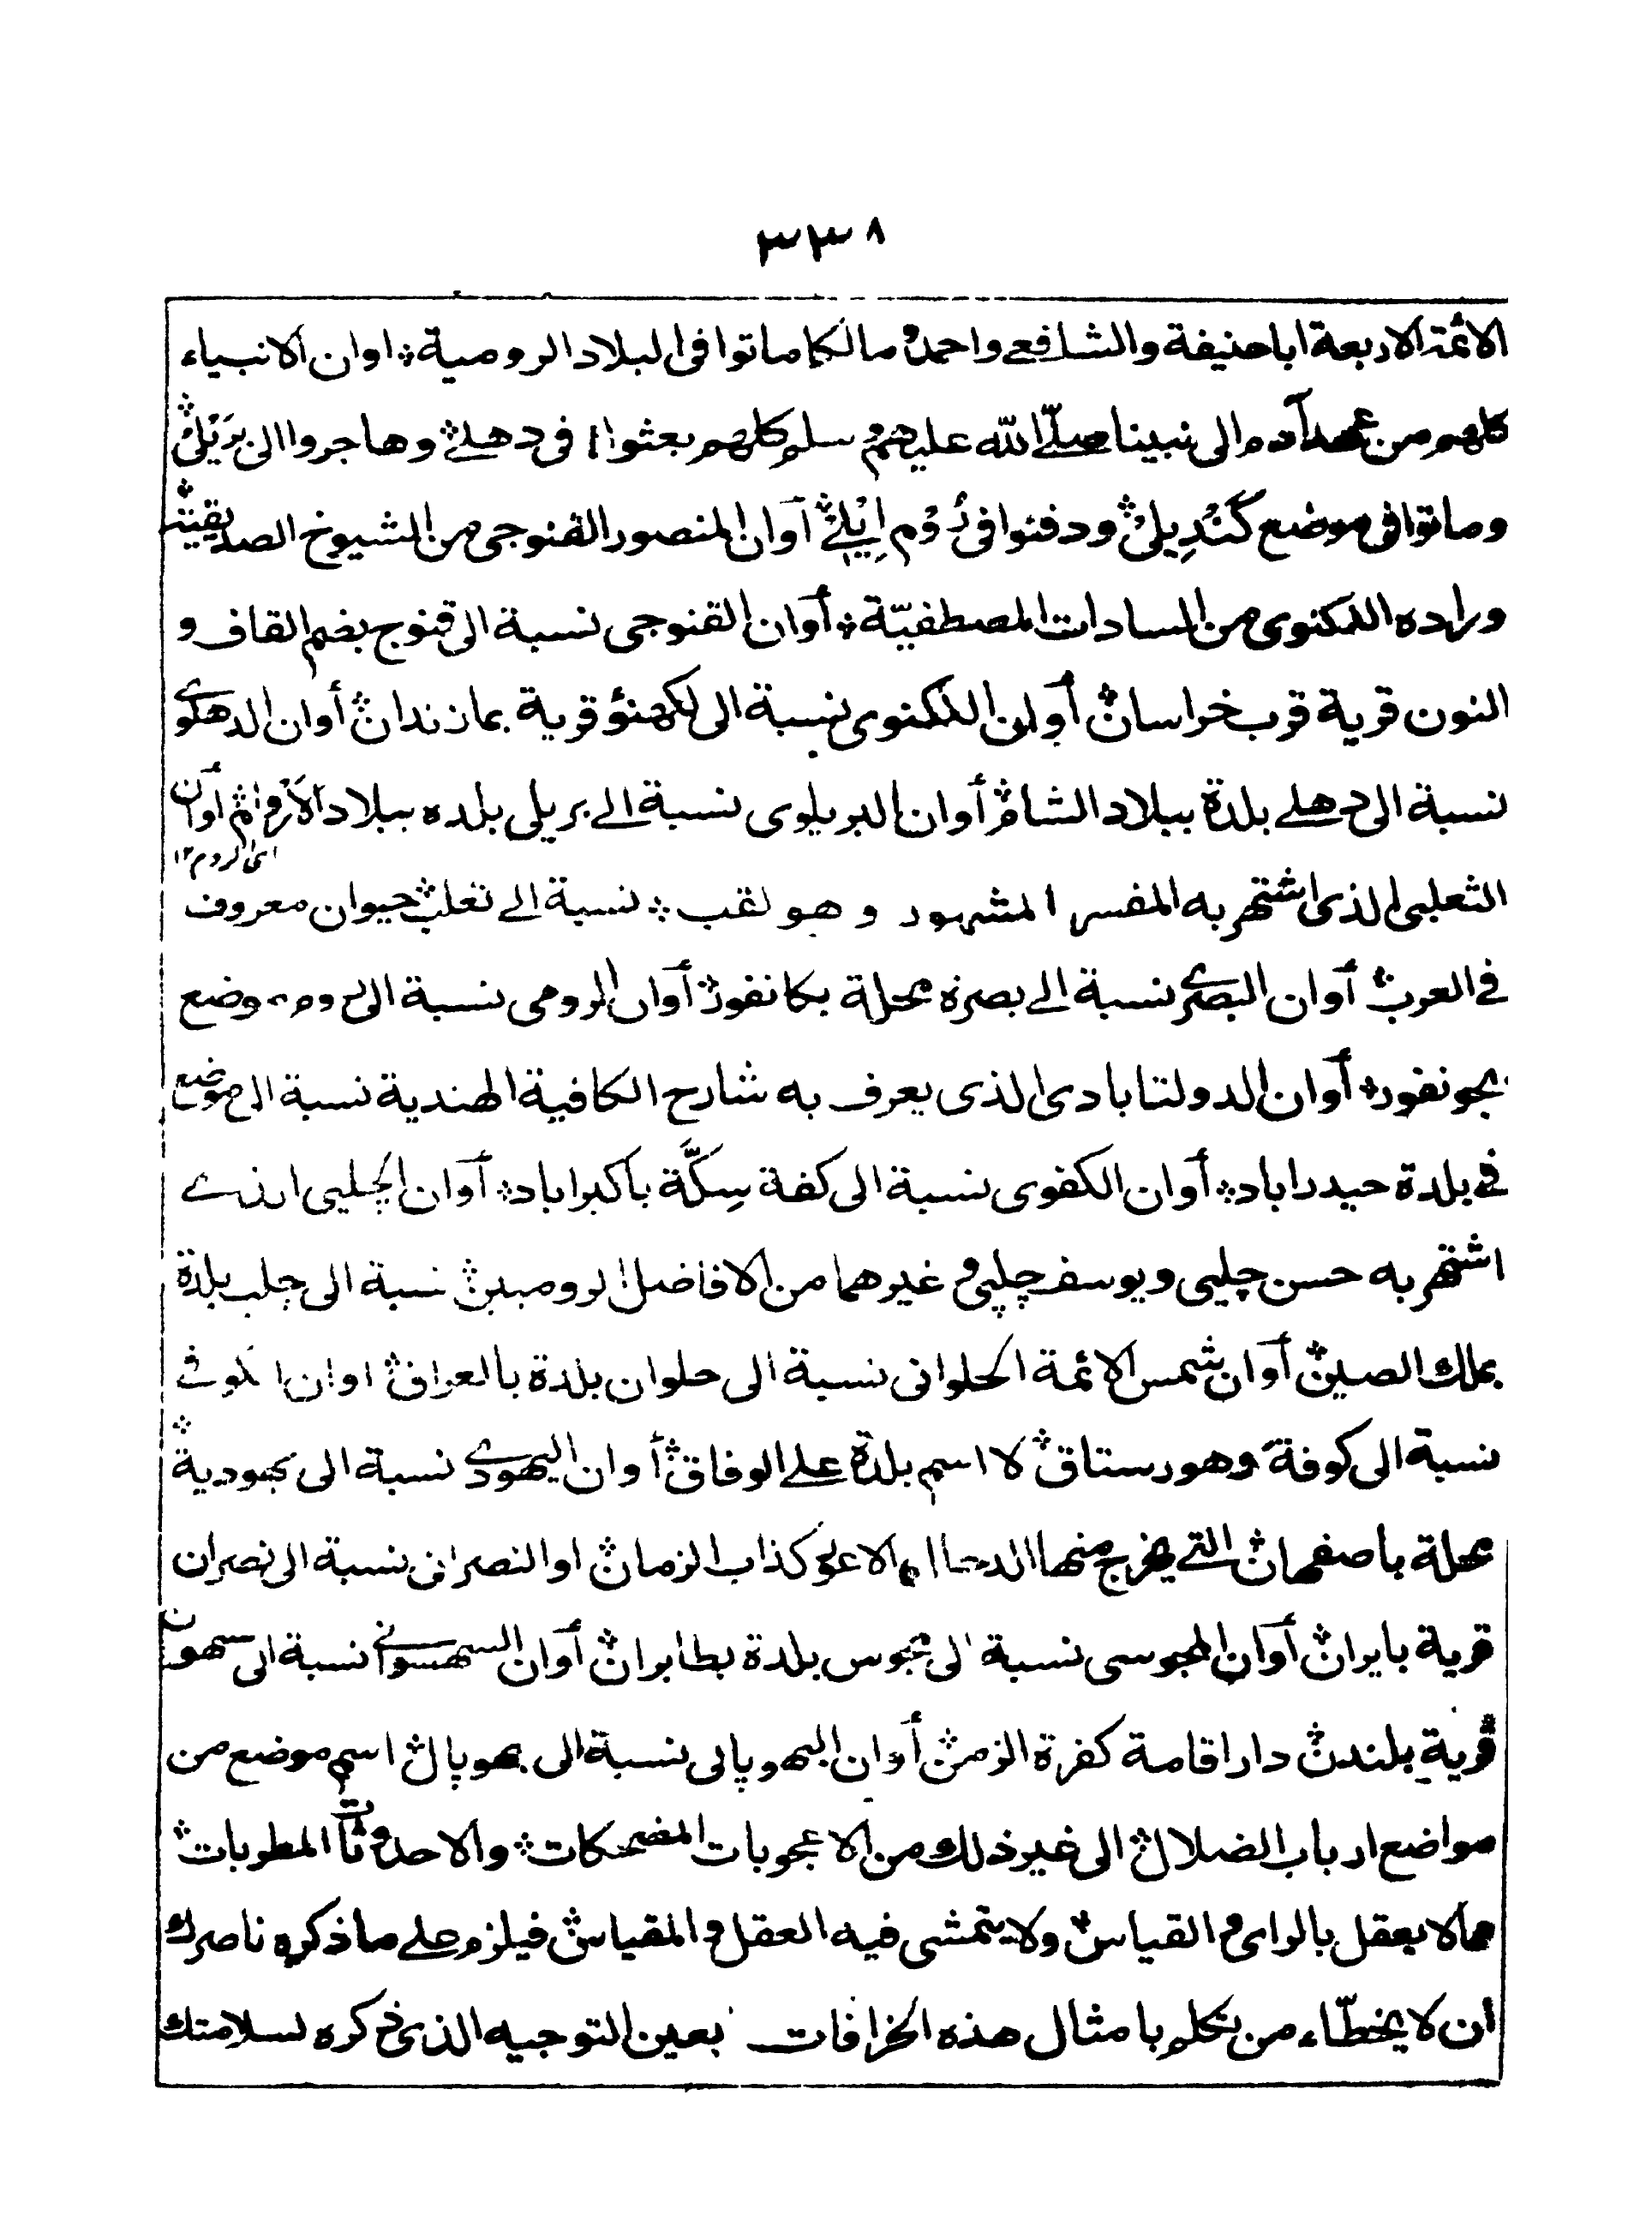 ٣٣٨
الائمة الاربعة ابا حنيفة والشافعے واحمد و مالكا ماتوا فی البلاد الرومية ؞ او ان الانبياء
كلهم من عهد آدم الى نبينا صلّے الله عليهم و سلم كلهم بعثوا فی دهلے ؞ وهاجروا الى بَرَيْلیْ ؞
وماتوا فی موضع كَنْدِيلیْ ؞ ودفنوا فی رُوْم اِيْلِے ؞ أو ان المنصور القنوجی من الشيوخ الصديقية ؞
وراده اللكنوی من السادات المصطفيّة ؞ أو ان القنوجی نسبة الى قنوج بضم القاف و
النون قرية قرب خراسان ؞ أو ان اللكنوی نسبة الى لكهنؤ قرية بمازندان ؞ أو ان الدهلوے
نسبة الى دهلے بلدة ببلاد الشام ؞ أو ان البريلوی نسبة الے بريلی بلده ببلاد الأرْوام ؞ أو ان
ای الروم ١٢
الثعلبی الذی اشتهر به المفسر المشهور وهو لقب ؞ نسبة الے ثعلب ؞ حيوان معروف
فے العرب ؞ أو ان البصرے نسبة الے بصره محلة بكانفور ؞ أو ان الرومی نسبة الى روم موضع
بجونفور ؞ أو ان الدولتابادی الذی يعرف به شارح الكافية الهندية نسبة الى موضع
فے بلدة حيدراباد ؞ أو ان الكفوی نسبة الى كفة سِكَّة باكبراباد ؞ أو ان الچلپی الذے
اشتهر به حسن چلپی و يوسف چلپی و غيرهما من الافاضل الروميين ؞ نسبة الى چلب بلدة
بملك الصين ؞ أو ان شمس الائمة الحلوانی نسبة الى حلوان بلدة بالعراق ؞ او ان الكوفے
نسبة الى كوفة وهو رستاق ؞ لا اسم بلدة علے الوفاق ؞ أو ان اليهودے نسبة الى يهودية ؞
محلة باصفهان ؞ التے يخرج منها الدجال الاعور كذاب الزمان ؞ او النصرانی نسبة الى نصران
قرية بايران ؞ أو ان المجوسی نسبة الى مجوس بلدة بطابران ؞ أو ان السهسوانے نسبة الى سهسوان
قرية بلندن ؞ دار اقامة كفرة الزمن ؞ أو ان البهوپالی نسبة الى بهوپال ؞ اسم موضع من
مواضع ارباب الضلال ؞ الى غير ذلك من الاعجوبات المضحكات ؞ والاحدوثات المطربات ؞
مما لا يعقل بالرای و القياس ؞ ولا يتمشى فيه العقل و المقياس ؞ فيلزم علے ما ذكره ناصرك
ان لا يخطّاء من تكلم بامثال هذه الخرافات بعين التوجيه الذی ذكره لسلامتك